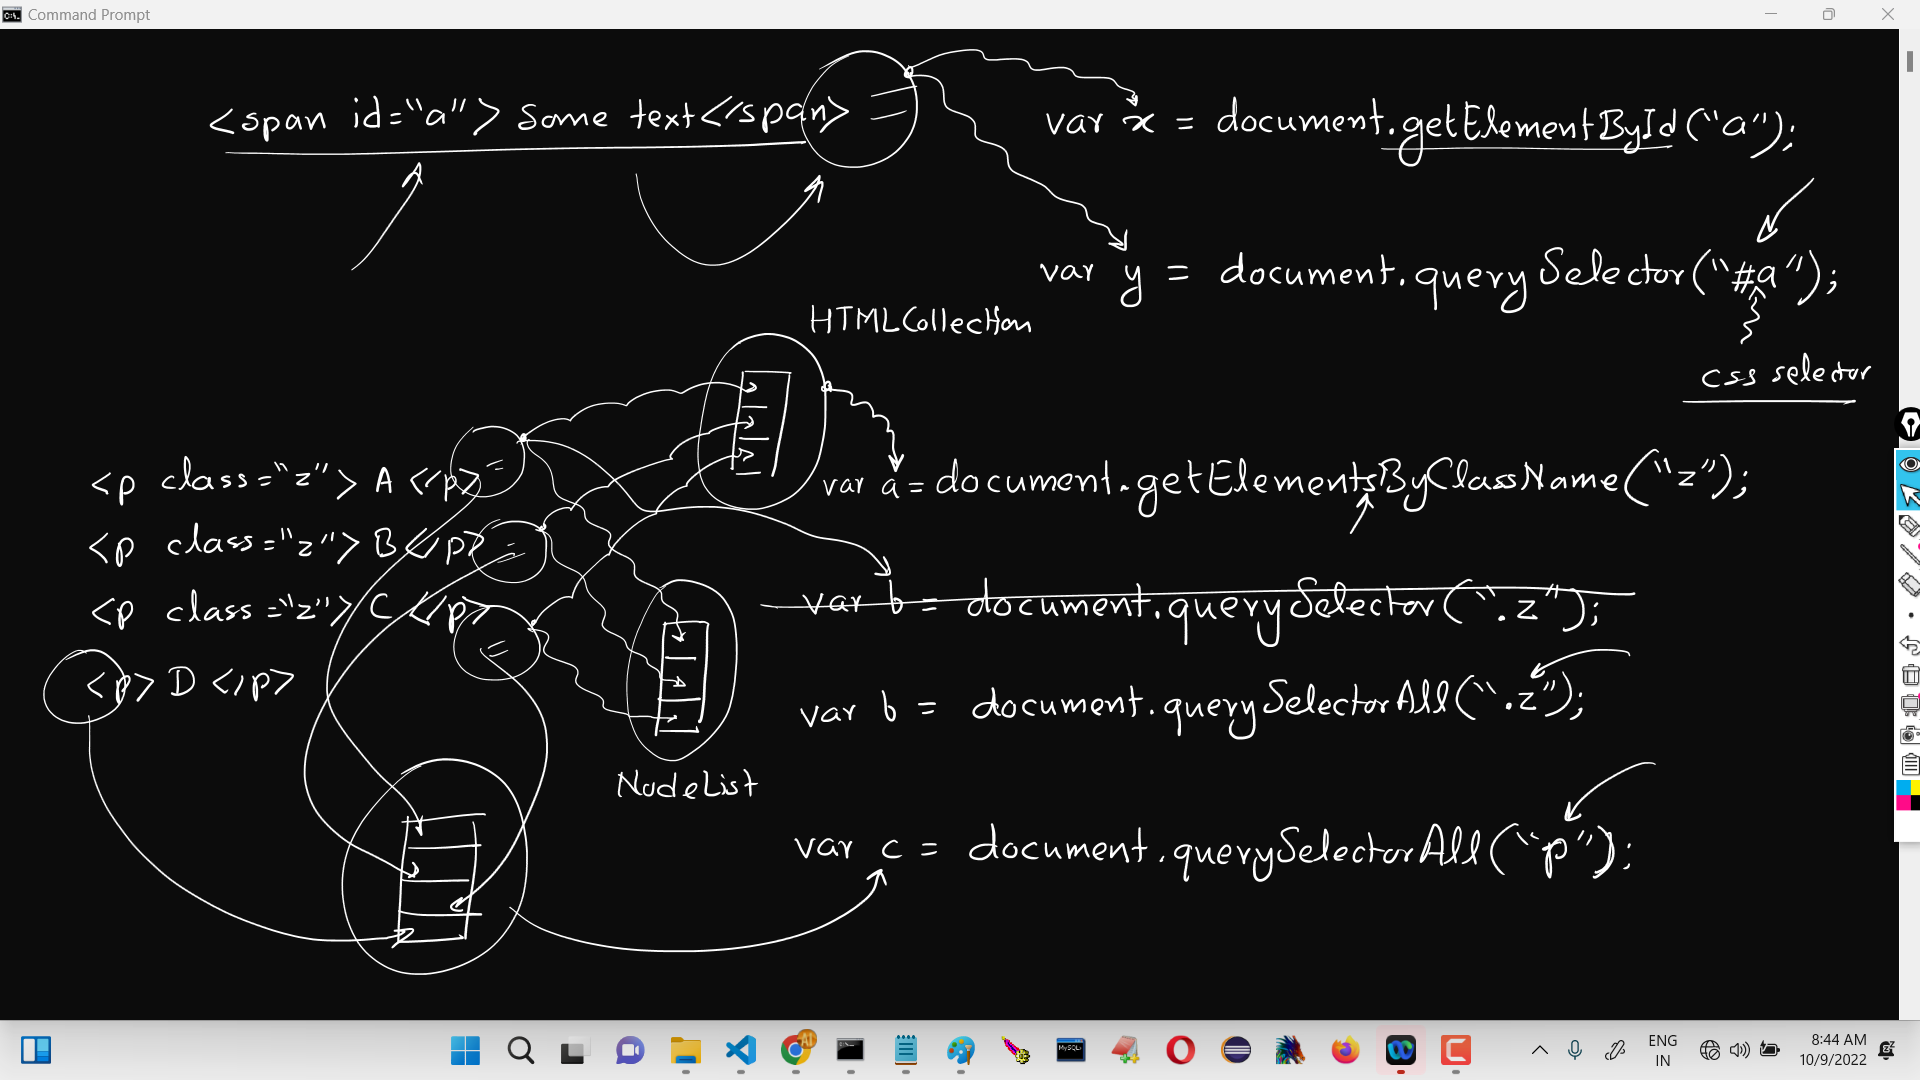 Command Prompt
<span id="a"> Some text</span>
var x = document.getElementById("a");
var y = document.querySelector("#a");
css selector
HTMLCollection
<p class="z"> A </p>
var a = document.getElementsByClassName("z");
<p class="z"> B </p>
<p class="z"> C </p>
var b = document.querySelector(".z");
<p> D </p>
var b = document.querySelectorAll(".z");
NodeList
var c = document.querySelectorAll("p");
AI
MySQL
ENG
IN
8:44 AM
10/9/2022